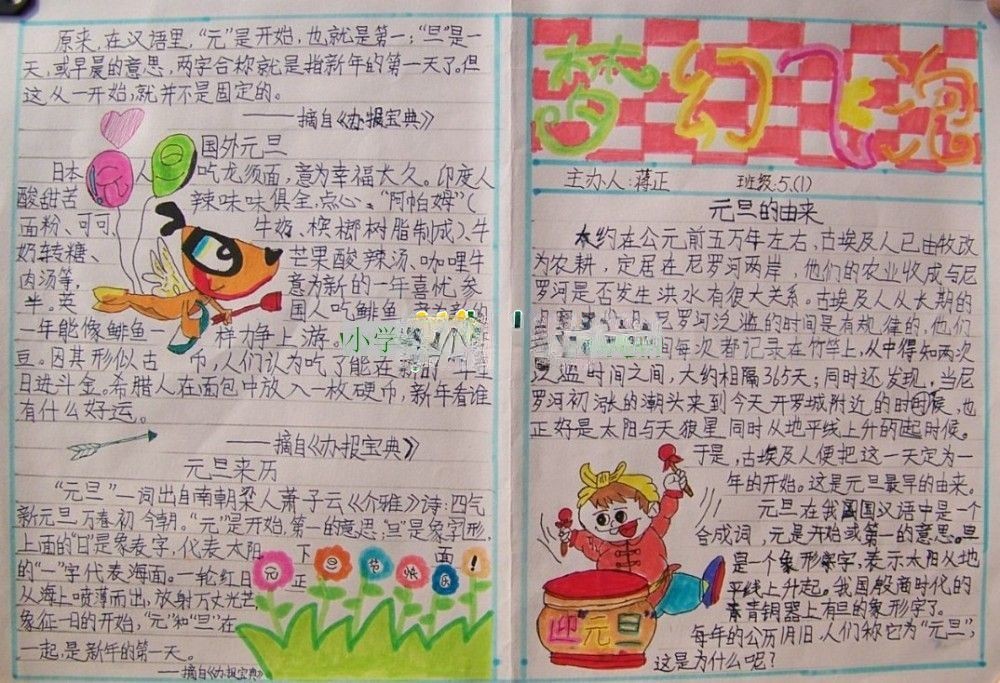 原来，在汉语里，“元”是开始，也就是第一；“旦”是一
天，或早晨的意思，两字合称就是指新年的第一天了。但
这从一开始，就并不是固定的。
——摘自《办报宝典》
国外元旦
日本人吃龙须面，意为幸福大久。印度人
酸甜苦辣味味俱全，点心。“阿帕姆”（
面粉、可可、牛奶、槟榔树脂制成）、牛
奶转糖、芒果酸辣汤、咖哩牛
肉汤等，意为新的一年喜忧参
半。英国人吃鲱鱼
一年能像鲱鱼一样力争上游。
豆。因其形似古币，人们认为吃了能在
日进斗金。希腊人在面包中放入一枚硬币，新年看谁
有什么好运。
——摘自《办报宝典》
元旦来历
“元旦”一词出自南朝梁人萧子云《介雅》诗：四气
新元旦，万春初今朝。“元”是开始，第一的意思；“旦”是象字形，
上面的“日”是象表字，代表太阳，下面
的“一”字代表海面。一轮红日
从海上喷薄而出，放射万丈光芒，
象征一日的开始，“元”和“旦”在
一起，是新年的第一天。
——摘自《办报宝典》
元
旦
快
乐
！
梦幻飞泡
主办人：蒋正 班级：5.(1)
元旦的由来
大约在公元前五万年左右，古埃及人已由牧改
为农耕，定居在尼罗河两岸，他们的农业收成与尼
罗河是否发生洪水有很大关系。古埃及人从长期的
尼罗河泛滥的时间是有规律的，他们
间每次都记录在竹竿上，从中得知两次
泛滥时间之间，大约相隔365天；同时还发现，当尼
罗河初涨的潮头来到今天开罗城附近的时候，也
正好是太阳与天狼星同时从地平线上升的起时候。
于是，古埃及人便把这一天定为一
年的开始。这是元旦最早的由来。
元旦在我国汉语中是一个
合成词，元是开始或第一的意思。旦
是一个象形字，表示太阳从地
平线上升起。我国殷商时代的
青铜器上有旦的象形字了。
每年的公历1月1日，人们称它为“元旦”，
这是为什么呢？
迎元旦
小学